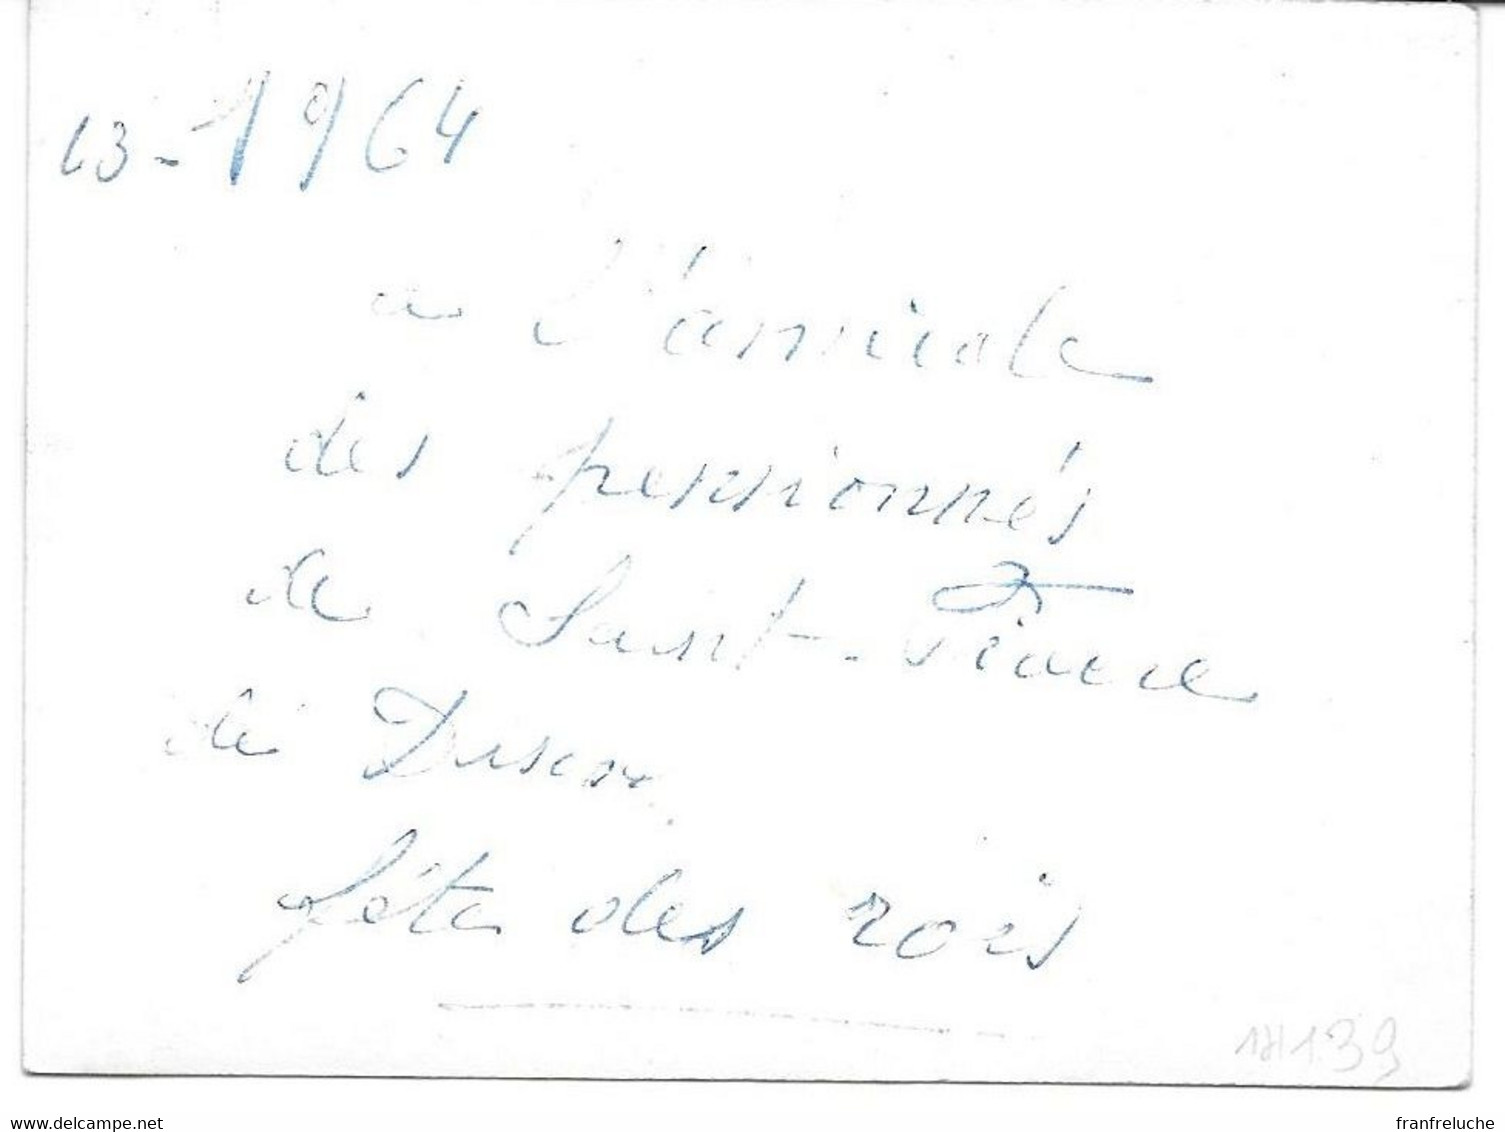 13-1964
a l'amicale
des pensionnés
de Saint-Pierre
de
fête des rois
139
www.delcampe.net
franfreluche